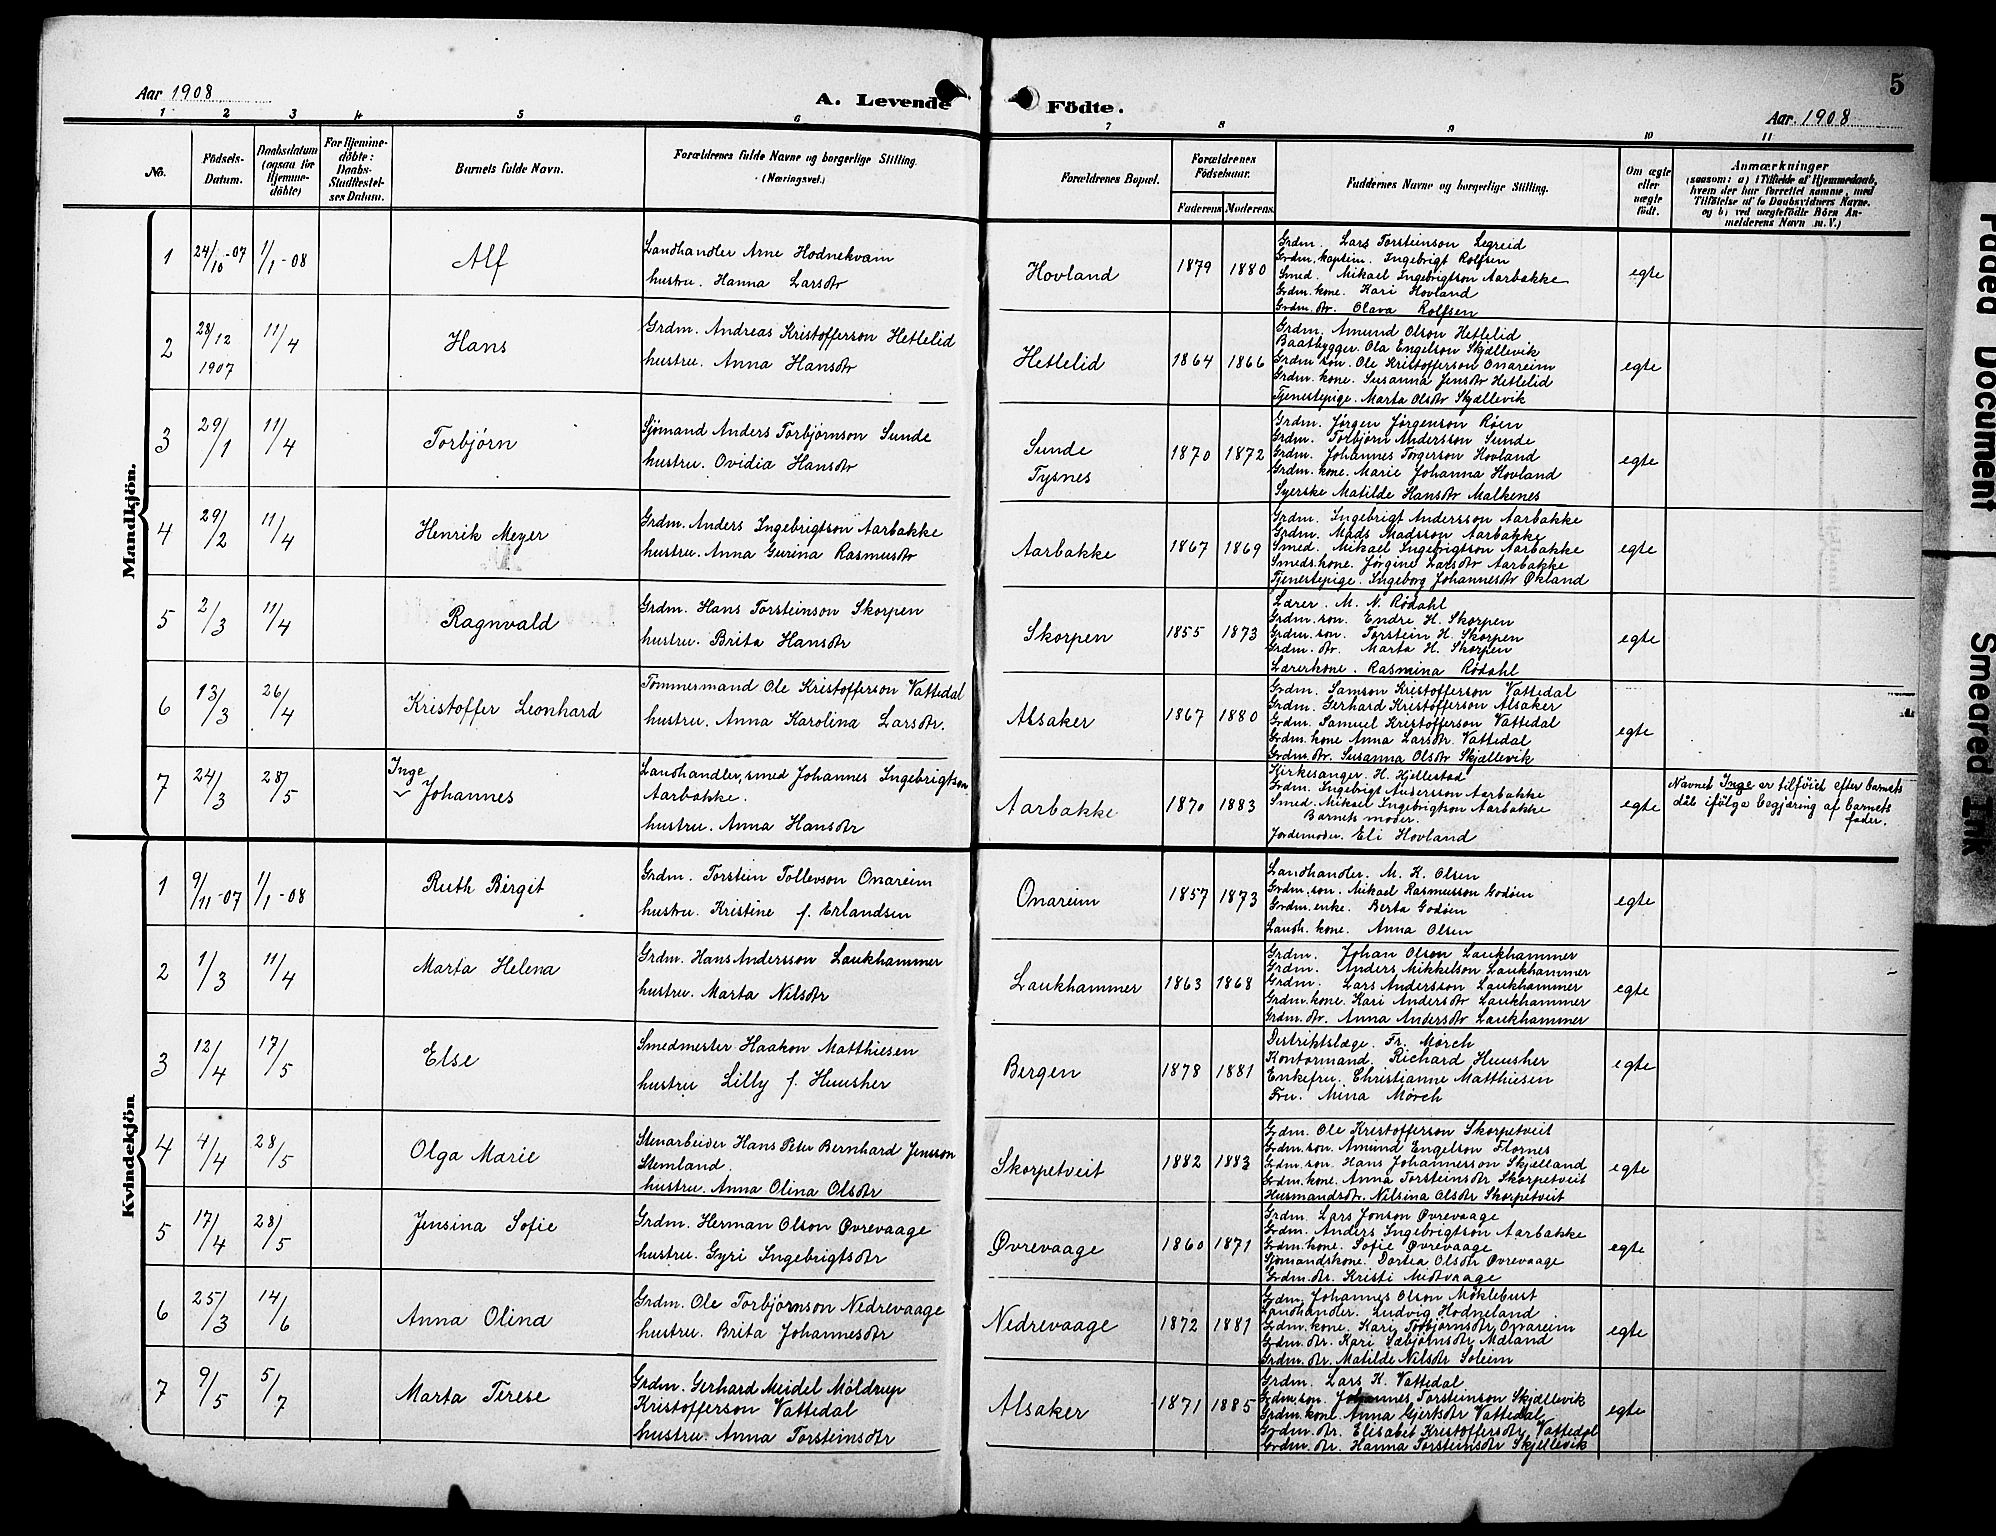 5
Aar 1908
A. Levende Födte.
Aar. 1908
1 2 3 4 5 6 7 8 9 10 11
No.
Födsels-Datum.
Daabsdatum (ogsaa for Hjemme-döbte)
For Hjemme-döbte: Daabs-Stadfæstel-ses Datum.
Barnets fulde Navn.
Forældrenes fulde Navne og borgerlige Stilling. (Næringsvei.)
Forældrenes Bopæl.
Forældrenes Födselsaar.
Faderens Moderens
Faddernes Navne og borgerlige Stilling.
Om ægte eller uægte født.
Anmærkninger
(saasom: a) i Tilfælde af Hjemmedaab,
hvem der har forrettet samme, med
Tilföielse af to Daabsvidners Navne.
og b) ved uægtefödte Börn An-
melderens Navn m. V.)
Mandkjön.
1
24/10-07
1/1-08
Alf
Landhandler Arne Hodnekvam
hustru. Hanna Larsdtr
Hovland
1879 1880
Grdm. Lars Torsteinson Legreid
Grdm. kaptein. Ingebrigt Rolfsen
Smed. Mikael Ingebrigtson Aarbakke
Grdm. kone. Kari Hovland
Grdm. dtr. Olava Rolfsen
egte
2
28/12 1907
11/4
Hans
Grdm. Andreas Kristofferson Hetlelid
hustru. Anna Hansdtr
Hetlelid
1864 1866
Grdm. Amund Olson Hetlelid
Baatbygger. Ola Engelson Skjællevik
Grdm son. Ole Kristofferson Onareim
Grdm. kone. Susanna Jensdtr Hetlelid
Tjenestepige. Marta Olsdtr Skjællevik
egte
3
29/1
11/4
Torbjörn
Sjömand Anders Torbjörnson Sunde
hustru. Ovidia Hansdtr
Sunde
Tysnes
1870 1872
Grdm. Jørgen Jørgenson Røen
Grdm. Torbjørn Andersson Sunde
Grdm. Johannes Torgerson Hovland
Grdm. kone. Marie Johanna Hovland
Syerske Matilde Hansdtr Malkenes
egte
4
29/2
11/4
Henrik Meyer
Grdm. Anders Ingebrigtson Aarbakke
hustru. Anna Gurina Rasmusdtr
Aarbakke
1867 1869
Grdm. Ingebrigt Andersson Aarbakke
Grdm. Mads Madsson Aarbakke
Smed. Mikael Ingebrigtson Aarbakke
Smeds.kone. Jørgine Larsdtr Aarbakke
Tjenestepige. Ingeborg Johannesdtr Økland
egte
5
2/3
11/4
Ragnvald
Grdm. Hans Torsteinson Skorpen
hustru. Brita Hansdtr
Skorpen
1855 1873
Lærer. M. N. Rødahl
Grdm. son. Endre H. Skorpen
Grdm. son. Torstein H. Skorpen
Grdm. dtr. Marta H. Skorpen
Lærerkone. Rasmina Rødahl
egte
6
13/3
26/4
Kristoffer Leonhard
Tömmermand Ole Kristofferson Vattedal
hustru. Anna Karolina Larsdtr.
Alsaker
1867 1880
Grdm. Samson Kristofferson Vattedal
Grdm. Gerhard Kristofferson Alsaker
Grdm. Samuel Kristofferson Vattedal
Grdm. kone Anna Larsdtr. Vattedal
Grdm. dtr. Susanna Olsdtr Skjællevik
egte
7
24/3
28/5
Inge
Johannes
Landhandler, smed Johannes Ingebrigtson
Aarbakke.
hustru. Anna Hansdtr
Aarbakke
1870 1883
Kirkesanger. H. Hjellestad
Grdm. Ingebrigt Andersson Aarbakke
Smed. Mikael Ingebrigtson Aarbakke
Barnets moder.
Jordemoder. Eli Hovland
egte
Navnet Inge er tilföiet efter barnets
dåb ifölge begjæring af barnets
fader.
Kvindekjön
1
9/11-07
1/1-08
Ruth Bergit
Grdm. Torstein Tollevson Onareim
hustru. Kristine f. Erlandsen
Onareim
1857 1873
Landhandler. M. K. Olsen
Grdm. son. Mikael Rasmusson Godöen
Grdm. enke. Berta Godöen
Landh. kone. Anna Olsen
egte
2
1/3
11/4
Marta Helena
Grdm. Hans Andersson Laukhammer
hustru. Marta Nilsdtr
Laukhammer
1863 1868
Grdm. Johan Olson Laukhammer
Grdm. Anders Mikkelson Laukhammer
Grdm. Lars Andersson Laukhammer
Grdm. kone. Kari Andersdtr Laukhammer
Grdm. dtr. Anna Andersdtr Laukhammer
egte
3
12/4
17/5
Else
Smedmester Haakon Matthiesen
hustru Lilly f. Huusher
Bergen
1878 1881
Distriktslæge. Fr. Mörch
Kontormand. Richard Huusher
Enkefru. Christianne Matthiesen
Fru. Mina Mörch
egte
4
4/4
28/5
Olga Marie
Stenarbeider Hans Peter Bernhard Jensson
Stemland.
hustru. Anna Olina Olsdtr
Skorpetveit
1882 1883
Grdm. Ole Kristofferson Skorpetveit
Grdm. son Amund Engelson Flornes
Grdm. son. Hans Johannesson Skjælland
Grdm. kone. Anna Torsteinsdtr Skorpetveit
Husmandsdtr. Nilsina Olsdtr Skorpetveit
egte
5
17/4
28/5
Jensina Sofie
Grdm. Herman Olson Øvrevaage
hustru. Gyri Ingebrigtsdtr
Øvrevaage
1860 1871
Grdm. Lars Jonson Øvrevaage
Grdm. Anders Ingebrigtson Aarbakke
Grdm. kone. Sofie Øvrevaage
Sjömandskone. Dortea Olsdtr Øvrevaage
Grdm. dtr. Kristi Midtvaage
egte
6
25/3
14/6
Anna Olina
Grdm. Ole Torbjørnson Nedrevaage
hustru. Brita Johannesdtr
Nedrevaage
1872 1881
Grdm. Johannes Olson Möklebust
Landhandler. Ludvig Hodneland
Grdm. kone. Kari Torbjørnsdtr Onareim
Grdm. dtr. Kari Sæbjørnsdtr Mæland
Grdm. dtr. Matilde Nilsdtr Soleim
egte
7
9/5
5/7
Marta Terese
Grdm. Gerhard Meidel Möldrup
Kristofferson Vattedal
hustru. Anna Torsteinsdtr
Alsaker
1871 1885
Grdm. Lars K. Vattedal
Grdm. son. Johannes Torsteinson Skjællevik
Grdm. kone. Anna Gjertsdtr Vattedal
Grdm. dtr. Elisabet Kristoffersdtr Vattedal
Grdm. dtr. Hanna Torsteinsdtr Skjellevik
egte
Faded Document
Smeared Ink